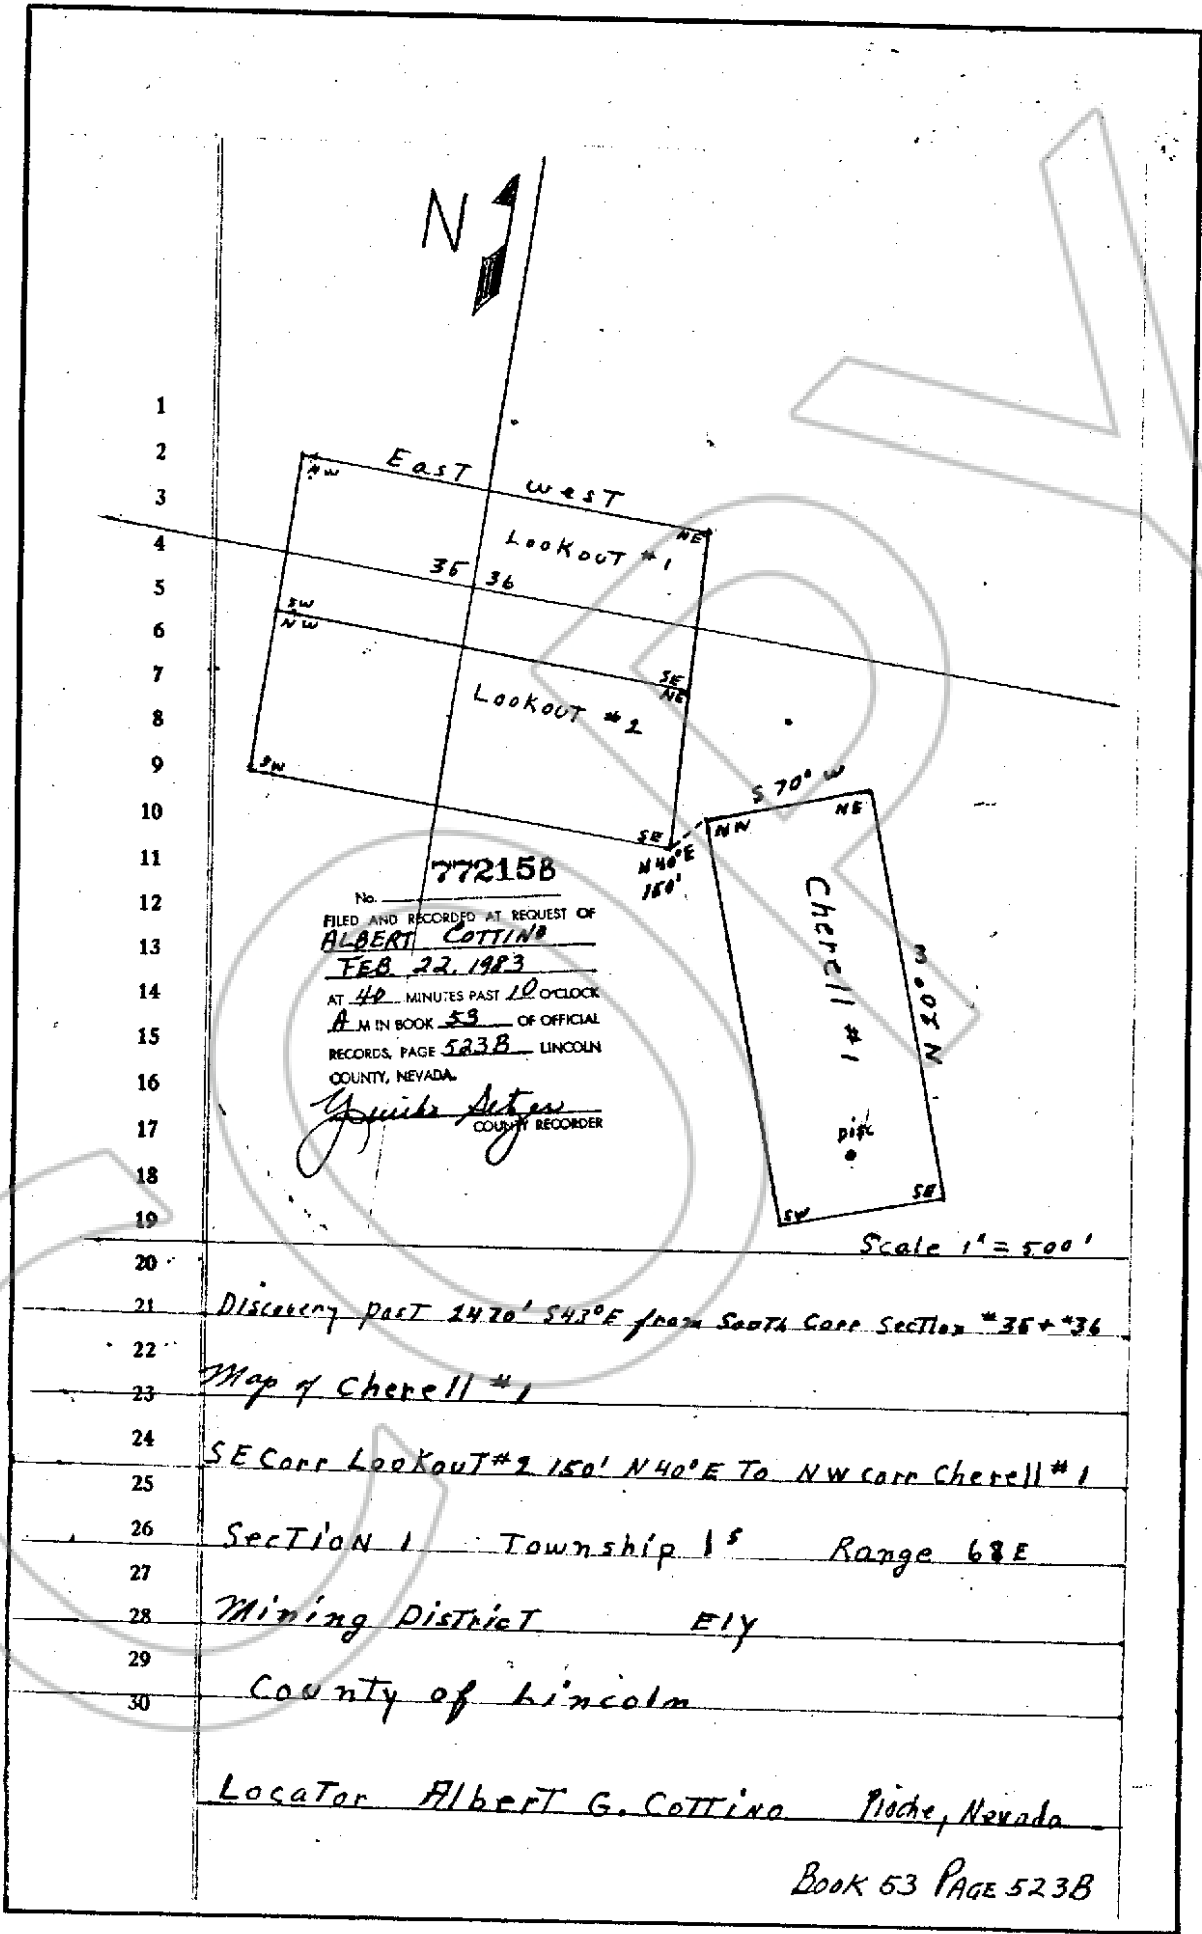 N
1
2
3
4
5
6
7
8
9
10
11
12
13
14
15
16
17
18
19
20
21
22
23
24
25
26
27
28
29
30
NW
East west
NE
Lookout #1
35 36
SW
NW
SE
NE
Lookout #2
SW
SE
N 40° E
150'
S 70° W
NW
NE
Cherell #1
N 20° W
Disc
SW
SE
No. 77215B
FILED AND RECORDED AT REQUEST OF
ALBERT COTTINO
FEB. 22, 1983
AT 40 MINUTES PAST 10 O'CLOCK
A M IN BOOK 53 OF OFFICIAL
RECORDS, PAGE 523B LINCOLN
COUNTY, NEVADA.
Setzer
COUNTY RECORDER
Scale 1" = 500'
Discovery post 2470' S43°E from South Corr Section #35 + #36
Map of Cherell #1
SE Corr Lookout #2 150' N 40° E To NW corr Cherell #1
Section 1 Township 1 S Range 68 E
Mining District Ely
County of Lincoln
Locator Albert G. Cottino Pioche, Nevada
Book 53 Page 523B
COPY